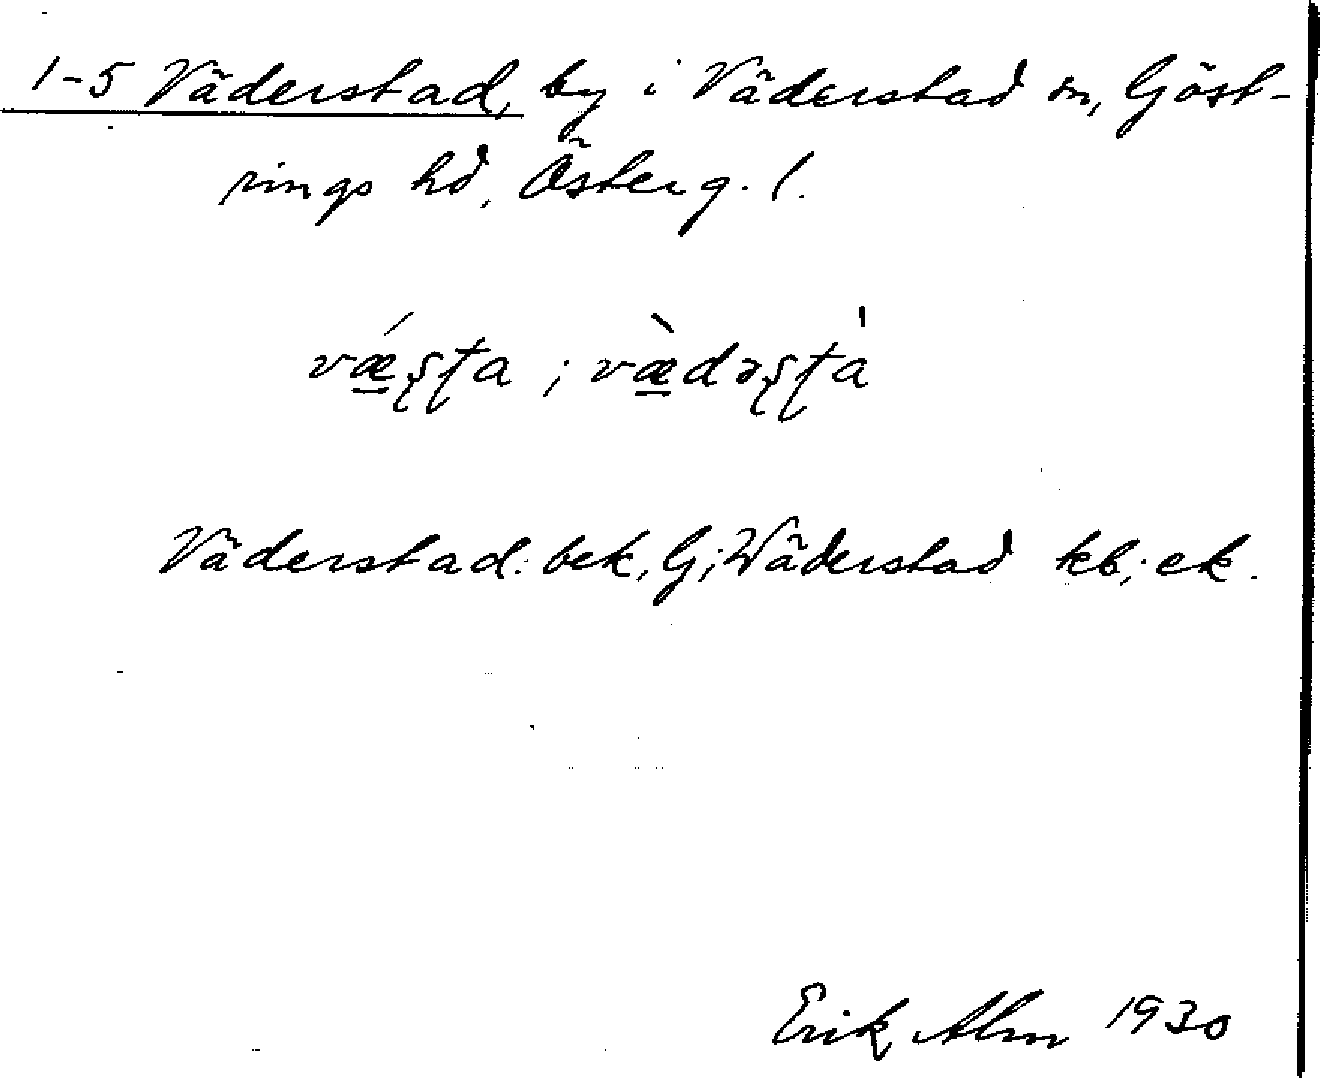 1-5 Väderstad, by i Väderstad sn, Göst-
rings hd, Österg. l.
vǽ̲ʂʈa ; væ̲̀dəʂʈa̍
Väderstad: bek, G; Wäderstad kb; ek.
Erik Alm 1930